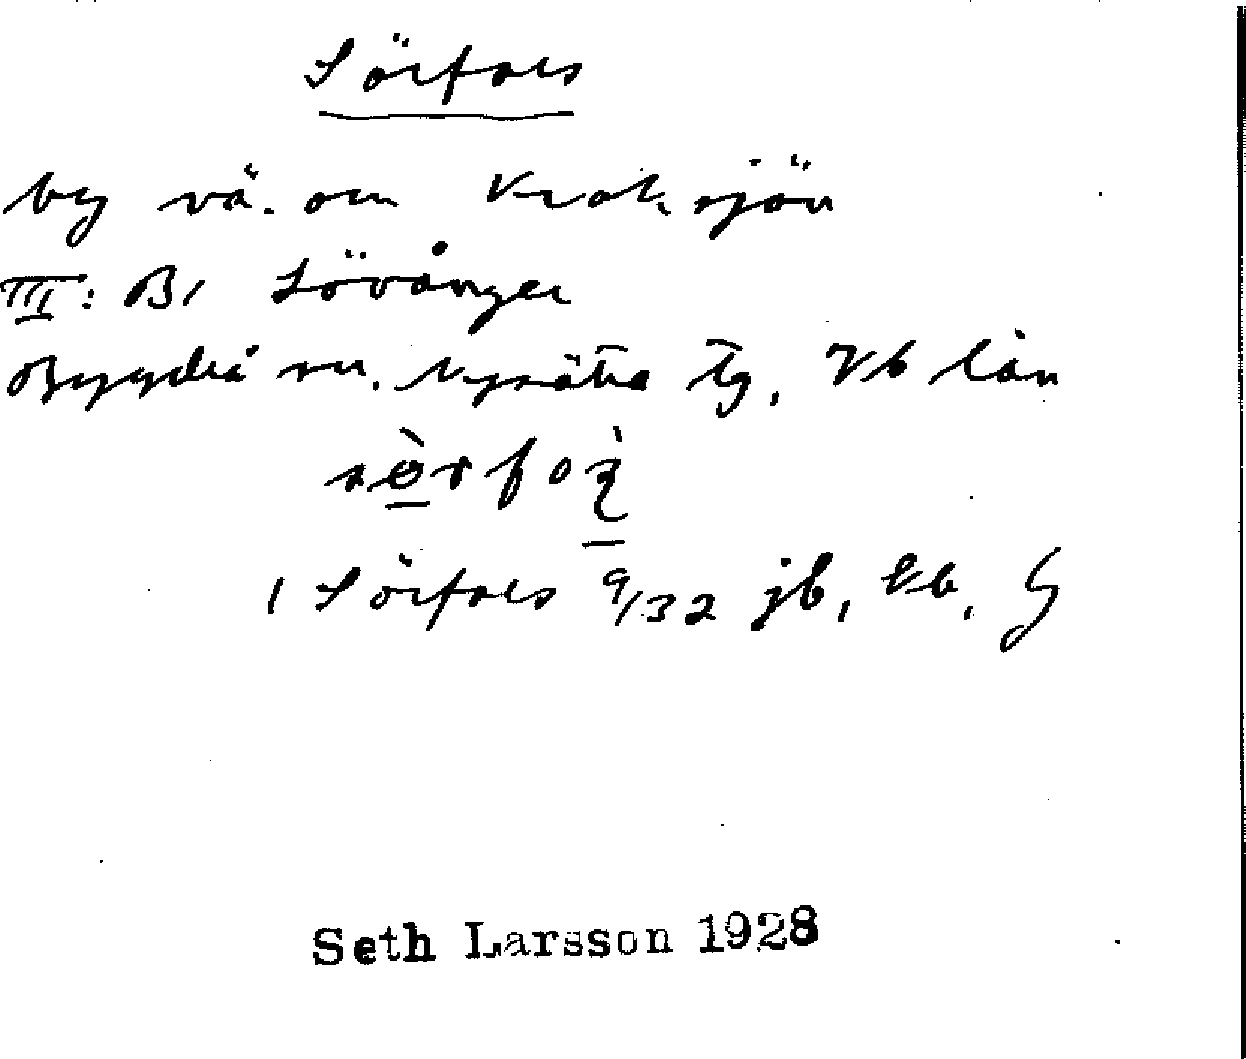 Sörfors
by vä. om Kroksjön
III: B1 Lövånger
Bygdeå sn. Nysätra tg, Vb län
1 Sörfors 9/32 jb, G
Seth Larsson 1928